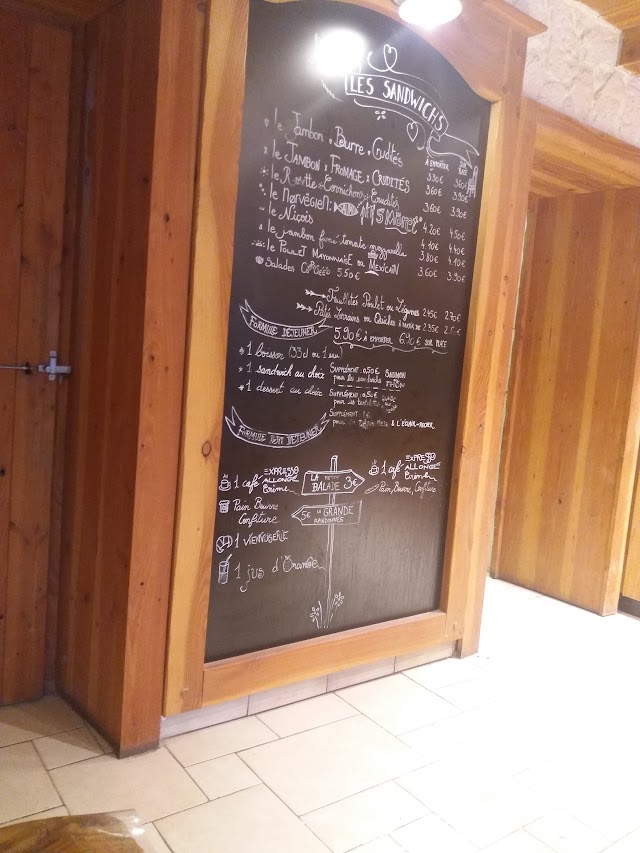 LES SANDWICHS
À EMPORTER SUR PLACE
le Jambon, Burre, Crudités 3.30€ 3.60€
le JAMBON, FROMAGE, CRUDITÉS 3.60€ 3.90€
le Rosette Cornichons Crudités 3.60€ 3.90€
le Norvégien 4.20€ 4.50€
le Niçois 4.10€ 4.40€
le jambon fumé tomate mozzarella 3.80€ 4.10€
le POULET MAYONNAISE ou MEXICAIN 3.60€ 3.90€
Salades COMPOSÉES 5.50€
Feuilletés Poulet ou Légumes 2.45€ 2.70€
Pâtés Lorrains ou Quiches 2.35€
FORMULE DEJEUNER
5.90€ À EMPORTER 6.90€ SUR PLACE
1 boisson (33cl ou 1 eau)
1 sandwich au choix SUPPLÉMENT: 0,50€ SAUMON
pour les sandwichs THON
1 dessert au choix SUPPLÉMENT: 0,50€
pour les
SUPPLÉMENT: 1€
& L'ÉCUREUIL-ROCHER
FORMULE PETIT DEJEUNER
1 café EXPRESSO ALLONGÉ Crème
Pain Beurre Confiture
1 VIENNOISERIE
1 jus d'Orange
LA PETITE BALADE 3€
5€ LA GRANDE RANDONNÉE
1 café EXPRESSO ALLONGÉ Crème
Pain, Beurre, Confiture